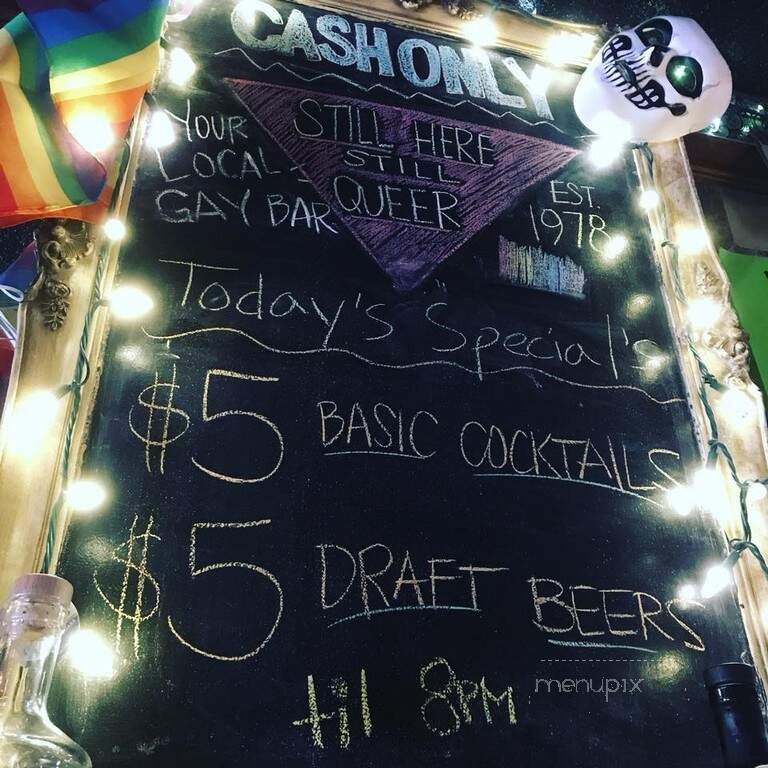 CASH ONLY
YOUR
LOCAL
GAY BAR
STILL HERE
STILL
QUEER
EST.
1978
Today's Special's
$5 BASIC COCKTAILS
$5 DRAFT BEERS
til 8PM
menupix